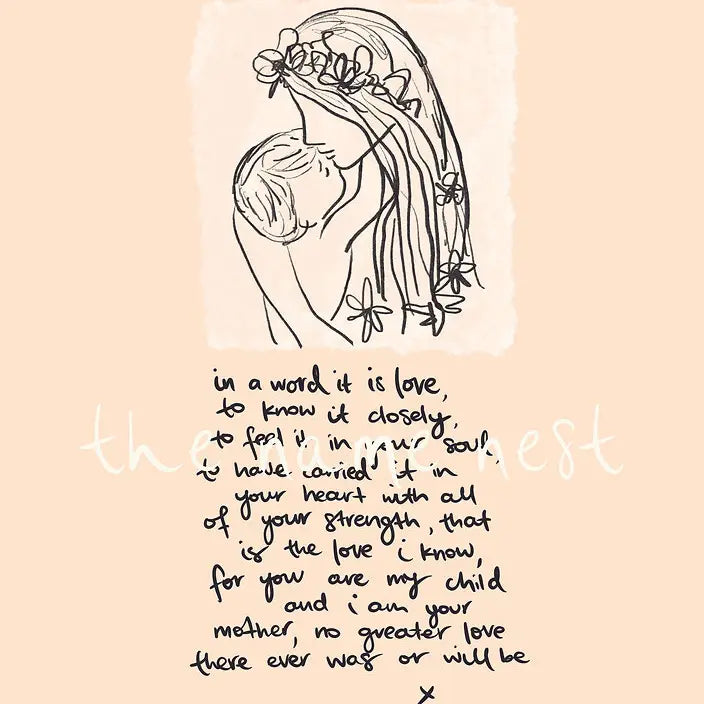 in a word it is love,
to know it closely,
to feel it in your soul,
the name nest
to have carried it in
your heart with all
of your strength, that
is the love i know,
for you are my child
and i am your
mother, no greater love
there ever was or will be
x